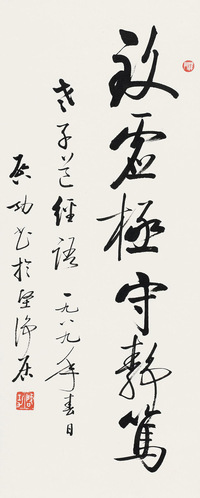 致虚極守静篤
老子道經語 一九八九年春日
啟功書於堅淨居